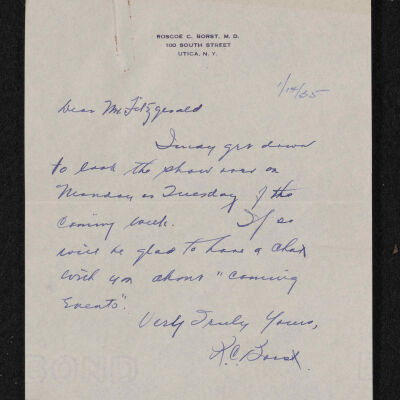 ROSCOE C. BORST, M. D.
100 SOUTH STREET
UTICA, N. Y.
1/14/55
Dear Mr. Fitzgerald
I may get down
to look the show over on
Monday or Tuesday of the
coming week. If so
will be glad to have a chat
with you about "Coming
Events".
Very Truly Yours,
R.C. Borst.